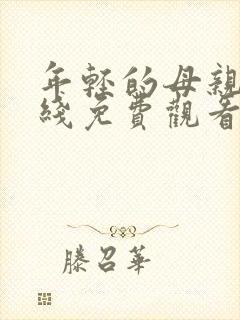 年轻的母親
綫免費觀看
滕召華